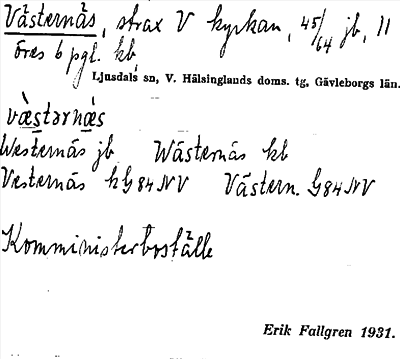 Västernäs, strax V kyrkan, 45/64 jb, 11
öres 6 pgl. kb,
Ljusdals sn, V. Hälsinglands doms. tg, Gävleborgs län.
væ̀stərnæ̀s
Westernäs jb Wästernäs kb
Vesternäs hG84NV Västern. G84NV
Komministerboställe
Erik Fallgren 1931.